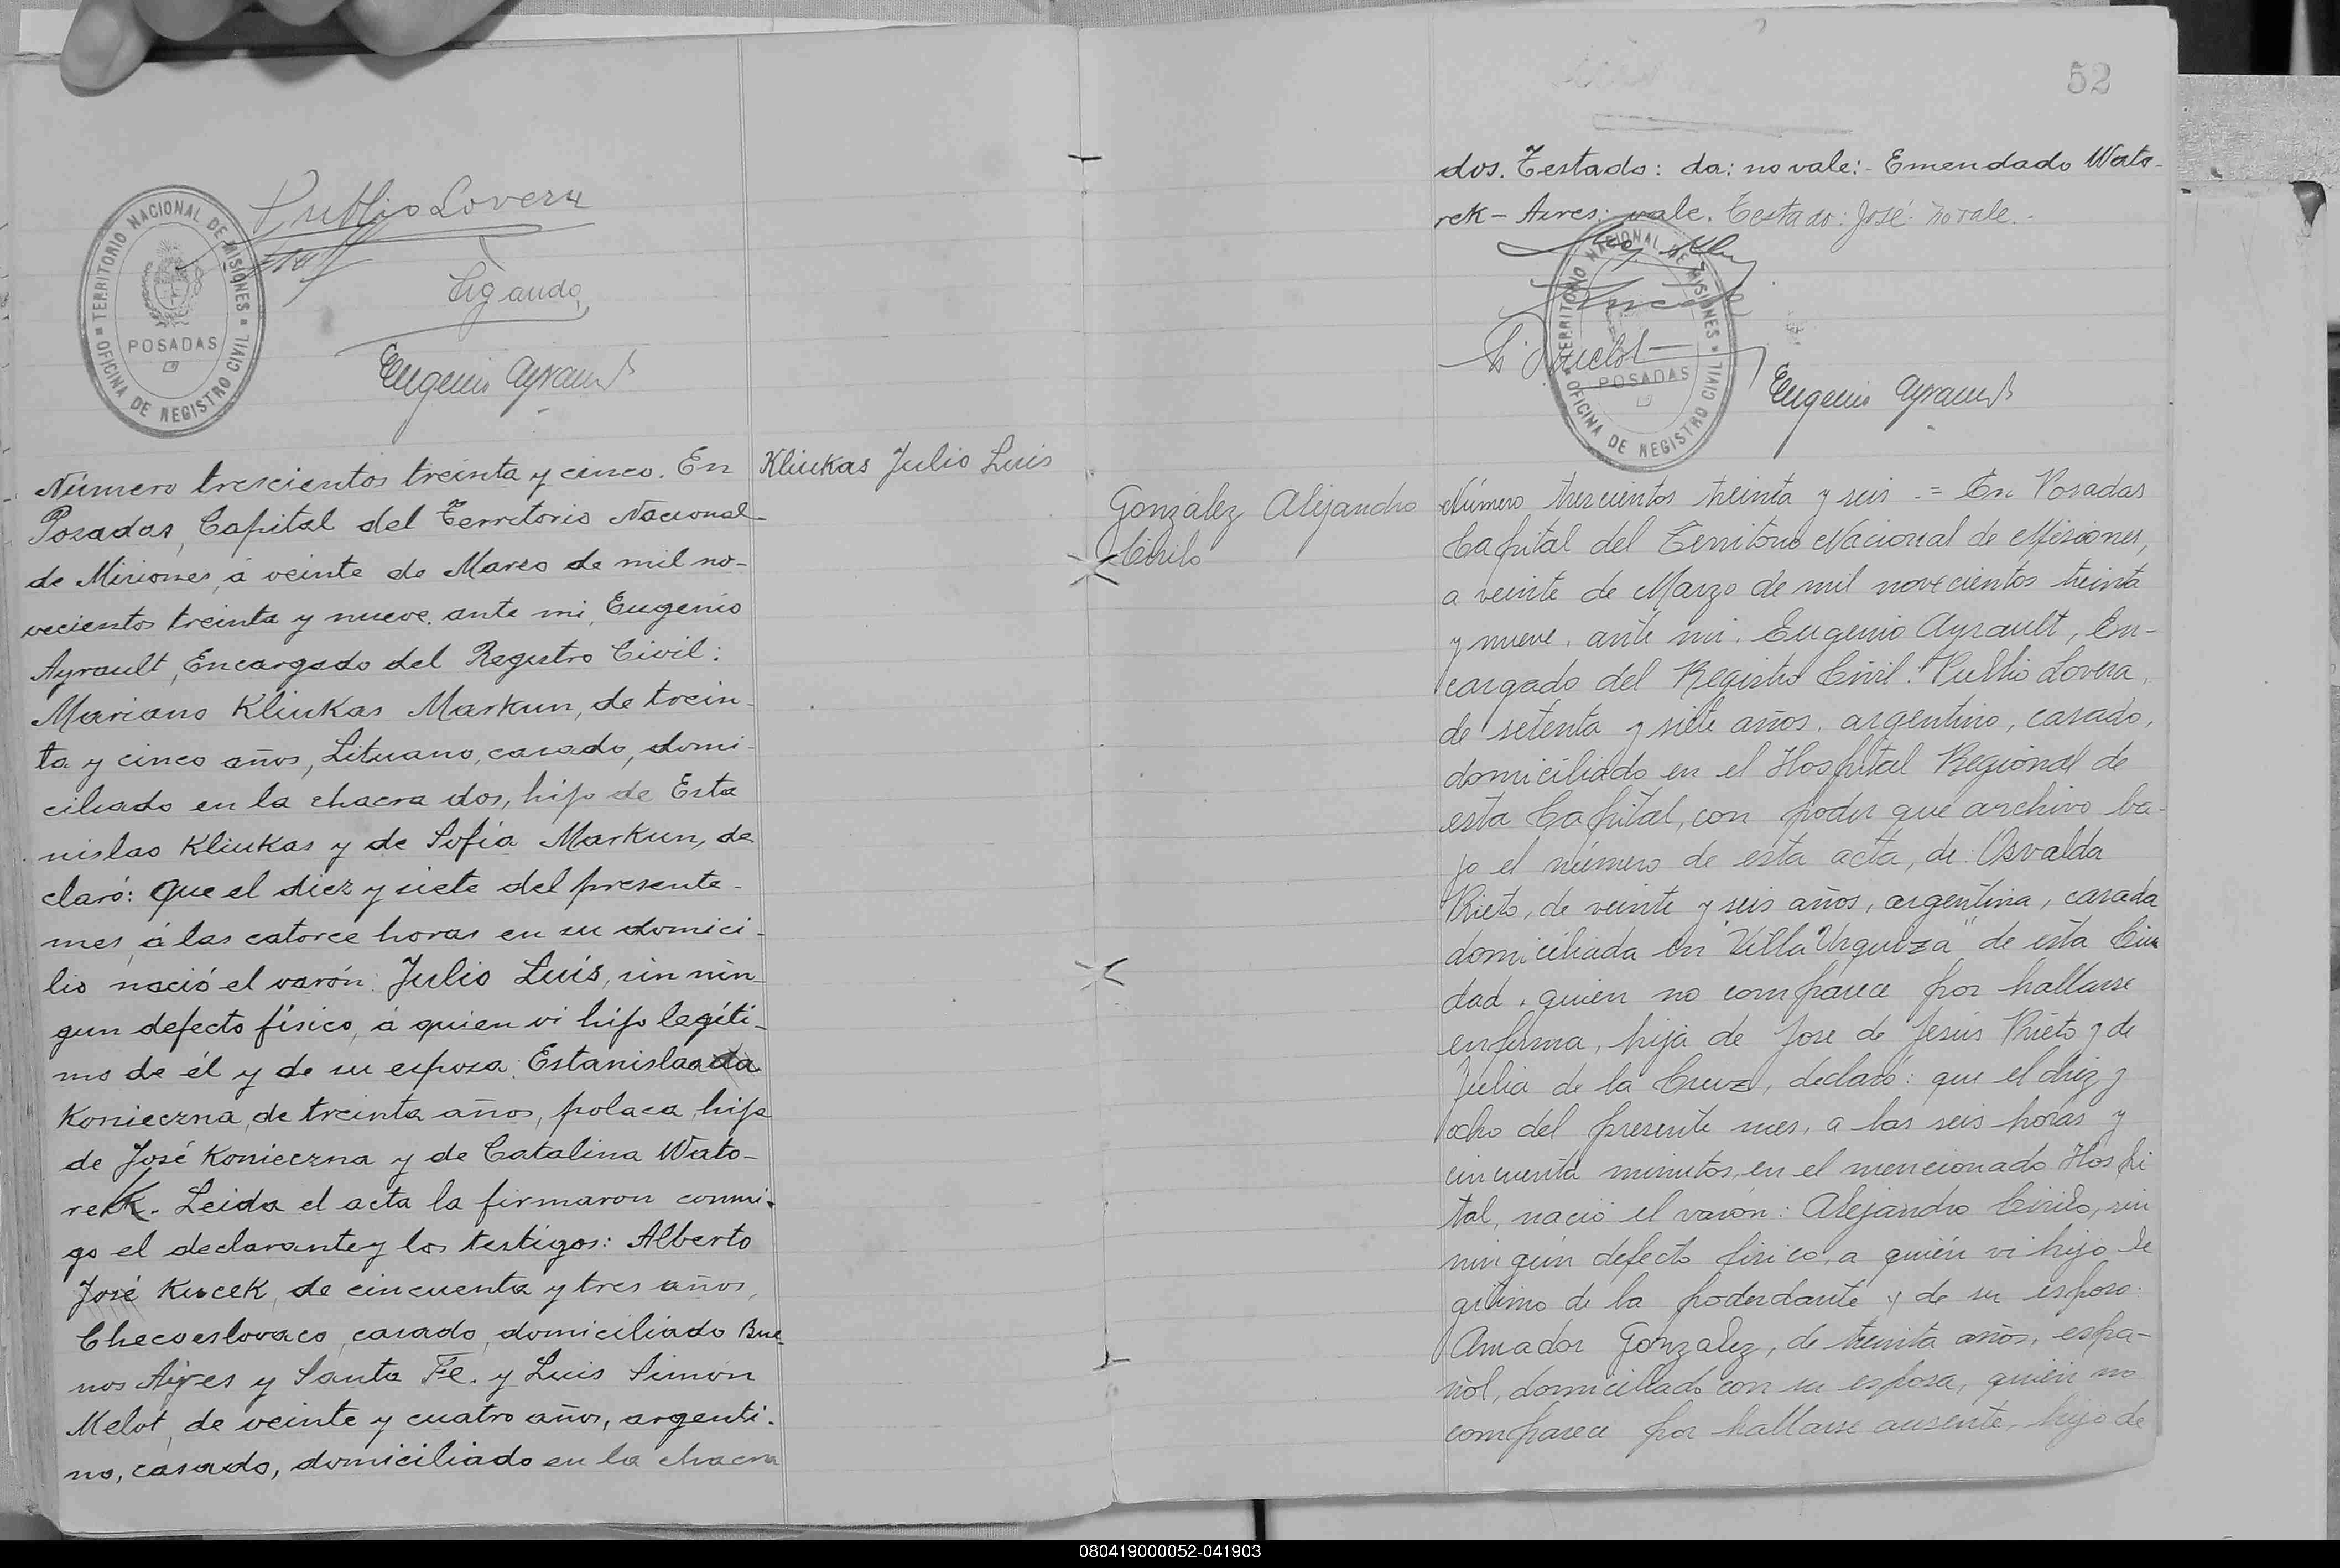 Publio Lovera
Ligaudo
Eugenio Ayrault
TERRITORIO NACIONAL DE MISIONES
POSADAS
OFICINA DE REGISTRO CIVIL
Kliukas Julio Luis
Número trescientos treinta y cinco. En
Posadas, Capital del Territorio Nacional
de Misiones, á veinte de Marzo de mil no-
vecientos treinta y nueve, ante mi, Eugenio
Ayrault, Encargado del Registro Civil:
Mariano Kliukas Markun, de trein-
ta y cinco años, Lituano, casado, domi-
ciliado en la chacra dos, hijo de Esta
nislao Kliukas y de Sofía Markun, de
claró: Que el diez y siete del presente
mes, á las catorce horas en su domici-
lio nació el varón: Julio Luís, sin nin-
gun defecto físico, á quien vi hijo legíti-
mo de él y de su esposa: Estanislaada
Konieczna, de treinta años, polaca, hija
de José Konieczna y de Catalina Wato-
rek. Leida el acta la firmaron conmi-
go el declarante y los testigos: Alberto
José Kucek, de cincuenta y tres años,
Checoeslovaco, casado, domiciliado Bue-
nos Ayres y Santa Fe. y Luis Simón
Melot, de veinte y cuatro años, argenti-
no, casado, domiciliado en la chacra
52
dos. Testado: da: no vale:- Emendado Wato-
rek - Aires: vale. Testado: José: no vale.-
Eugenio Ayrault
TERRITORIO NACIONAL DE MISIONES
POSADAS
OFICINA DE REGISTRO CIVIL
González Alejandro
Cirilo
Número trescientos treinta y seis .= En Posadas
Capital del Territorio Nacional de Misiones,
a veinte de Marzo de mil novecientos treinta
y nueve, ante mi, Eugenio Ayrault, En-
cargado del Registro Civil: Publio Lovera,
de setenta y siete años, argentino, casado,
domiciliado en el Hospital Regional de
esta Capital, con poder que archivo ba-
jo el número de esta acta, de: Osvalda
Prieto, de veinte y seis años, argentina, casada
domiciliada en "Villa Urquiza" de esta Ciu
dad, quien no comparece por hallarse
enferma, hija de Jose de Jesús Prieto y de
Julia de la Cruz, declaró: que el diez y
ocho del presente mes, a las seis horas y
cincuenta minutos, en el mencionado Hospi
tal, nació el varón: Alejandro Cirilo, sin
ningún defecto físico, a quién vi hijo le
gítimo de la poderdante y de su esposo:
Amador González, de treinta años, espa-
ñol, domiciliado con su esposa, quién no
comparece por hallarse ausente, hijo de
080419000052-041903